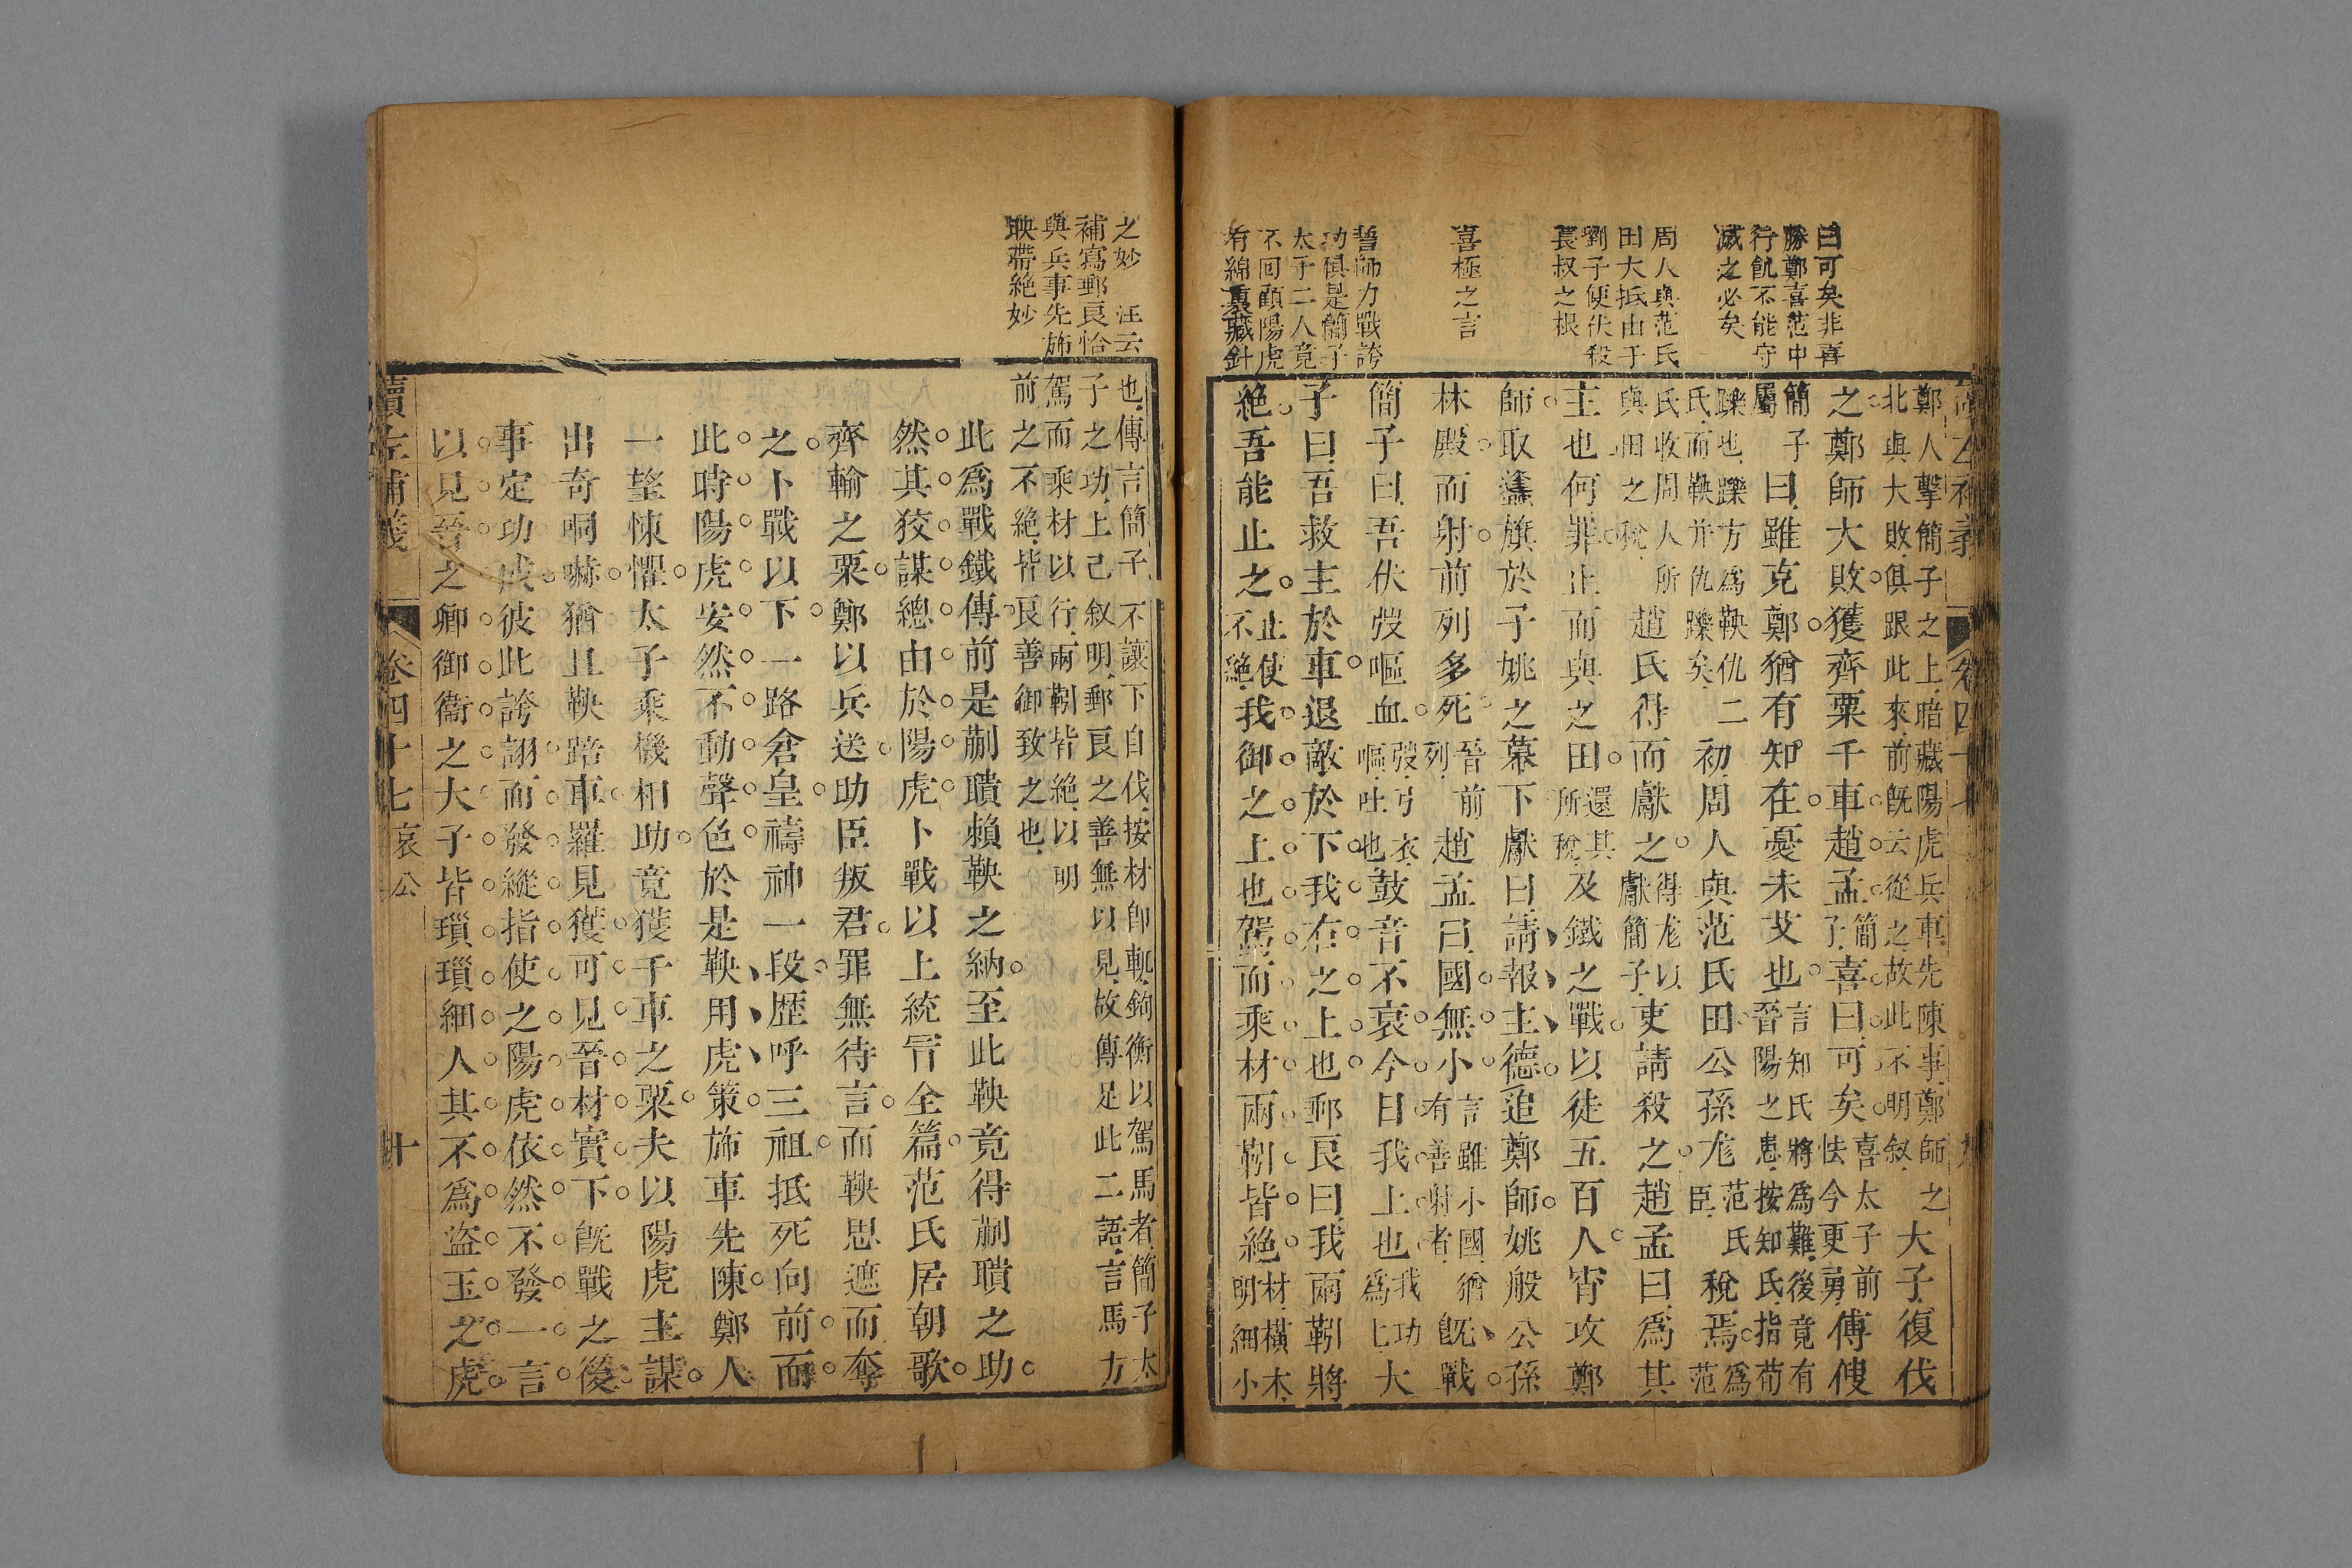 曰可矣非喜
勝鄭喜范中
行飢不能守
滅之必矣
周人與范氏
田大抵由于
劉子使伏殺
萇叔之根
喜極之言
誓師力戰誇
功俱是簡子
太子二人竟
不回顧陽虎
有綿裏藏針
鄭人擊簡子之上暗藏陽虎兵車先陳事鄭師之
北與大敗俱跟此來前既云從之故此不明叙
大子復伐
之鄭師大敗獲齊粟千車趙孟
簡
子
喜曰可矣
喜太子前
怯今更勇
傅傁
簡子
屬
曰雖克鄭猶有知在憂未艾也
言知氏將為難後竟有
晉陽之患按知氏指荀
躒也躒方為鞅仇二
氏而鞅并仇躒矣
初周人與范氏田公孫尨
范氏
臣
稅焉
為
范
氏收周人所
與田之稅
趙氏得而獻之
得尨以
獻簡子
吏請殺之趙孟曰為其
主也何罪止而與之田
還其
所稅
及鐵之戰以徒五百人宵攻鄭
師取蠭旗於子姚之幕下獻曰請報主德追鄭師姚般公孫
林殿而射前列多死
晉前
列
趙孟曰國無小
言雖小國猶
有善射者
既戰
簡子曰吾伏弢嘔血
弢弓衣
嘔吐也
鼓音不衰今日我上也
我功
為上
大
子曰吾救主於車退敵於下我右之上也郵良曰我兩靷將
絕吾能止之
止使
不絕
我御之上也駕而乘材兩靷皆絕
材橫木
明細小
卷四十七
之妙　汪云
補寫郵良恰
與兵事先斾
映帶絕妙
也傳言簡子不讓下自伐按材即軏鉤衡以駕馬者簡子太
子之功上己叙明郵良之善無以見故傳足此二語言馬方
駕而乘材以行兩靷皆絕以明
前之不絕皆良善御致之也
此為戰鐵傳前是蒯聵賴鞅之納至此鞅竟得蒯聵之助
然其狡謀總由於陽虎卜戰以上統冐全篇范氏居朝歌
齊輸之粟鄭以兵送助臣叛君罪無待言而鞅思遮而奪
之卜戰以下一路倉皇禱神一段歷呼三祖抵死向前而
此時陽虎安然不動聲色於是鞅用虎策斾車先陳鄭人
一望悚懼太子乘機相助竟獲千車之粟夫以陽虎主謀
出奇恫嚇猶且鞅踣車羅見獲可見晉材實下旣戰之後
事定功成彼此誇詡而發縱指使之陽虎依然不發一言
以見晉之卿御衞之大子皆瑣瑣細人其不為盜玉之虎
讀左補義　卷四十七　哀公　十